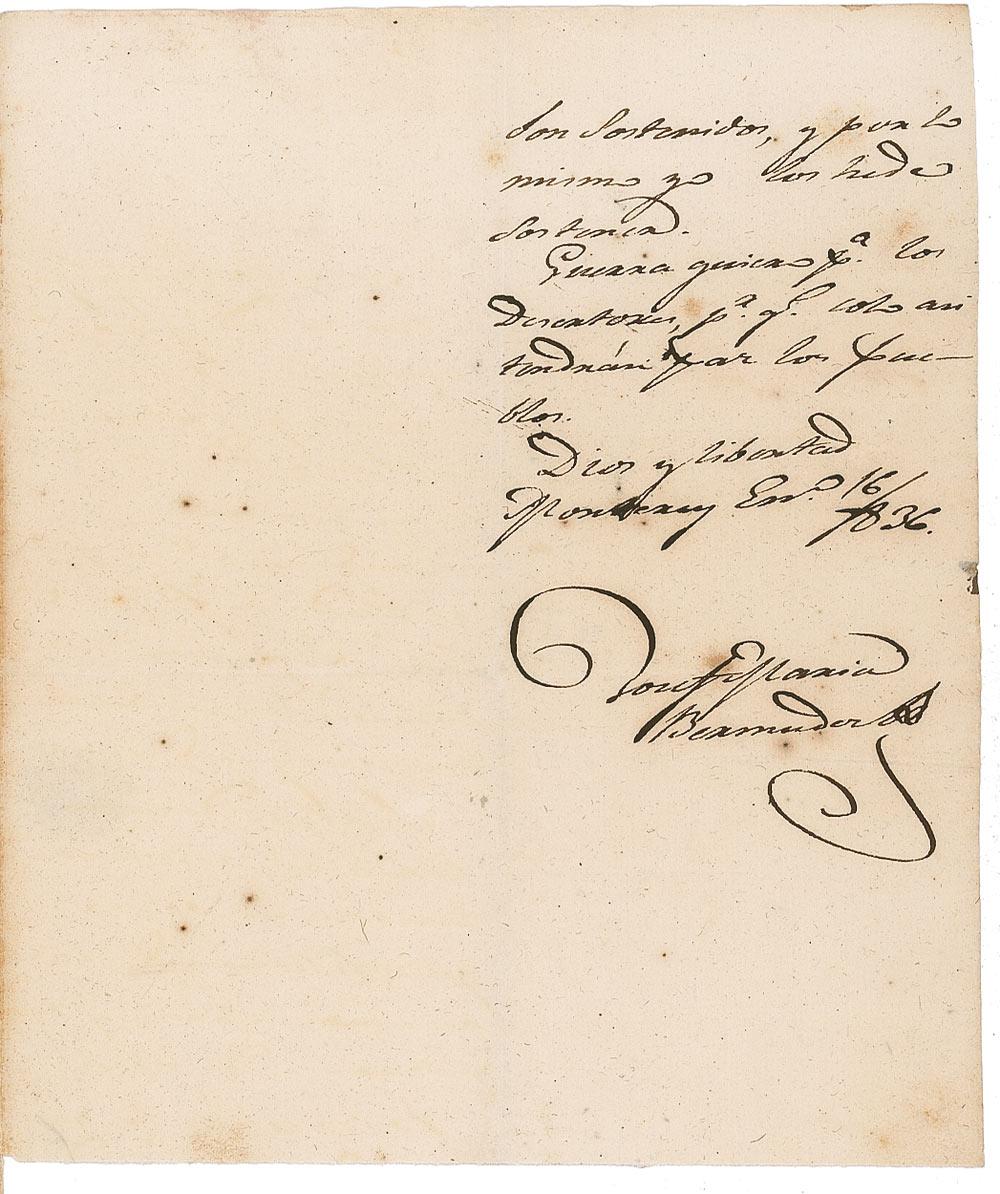 son sostenidos, y por lo
mismo yo los hé de
sostener.
Guerra quiero pª. los
Desertores, pª. qᵉ. solo asi
tendrán paz los Pue-
blos.
Dios y libertad
Monterrey Enº 16/
1836.
José Maria
Bermudez